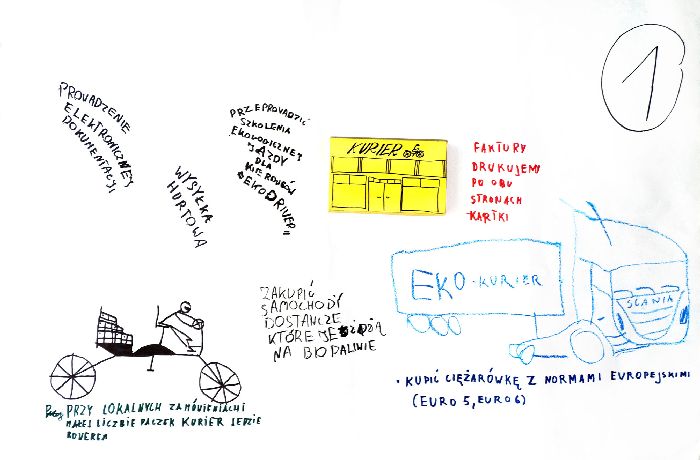 1
PROVADZENIE
ELEKTRONICZNEJ
DOKUMENTACJI
PRZEPROVADZIĆ
SZKOLENIA
EKOLOGICZNEJ
JAZDY
DLA
KIEROWCÓW
"EKODRIVER"
WYSYŁKA
HURTOWA
KURIER
FAKTURY
DRUKUJEMY
PO OBU
STRONACH
KARTKI
ZAKUPIĆ
SAMOCHODY
DOSTAWCZE
KTÓRE JEŻDŻĄ
NA BIOPALIWIE
EKO-KURIER
SCANIA
PRZY LOKALNYCH ZAMÓWIENIACH I
MAŁEJ LICZBIE PACZEK KURIER JEDZIE
ROWEREM
• KUPIĆ CIĘŻARÓWKĘ Z NORMAMI EUROPEJSKIMI
(EURO 5, EURO 6)